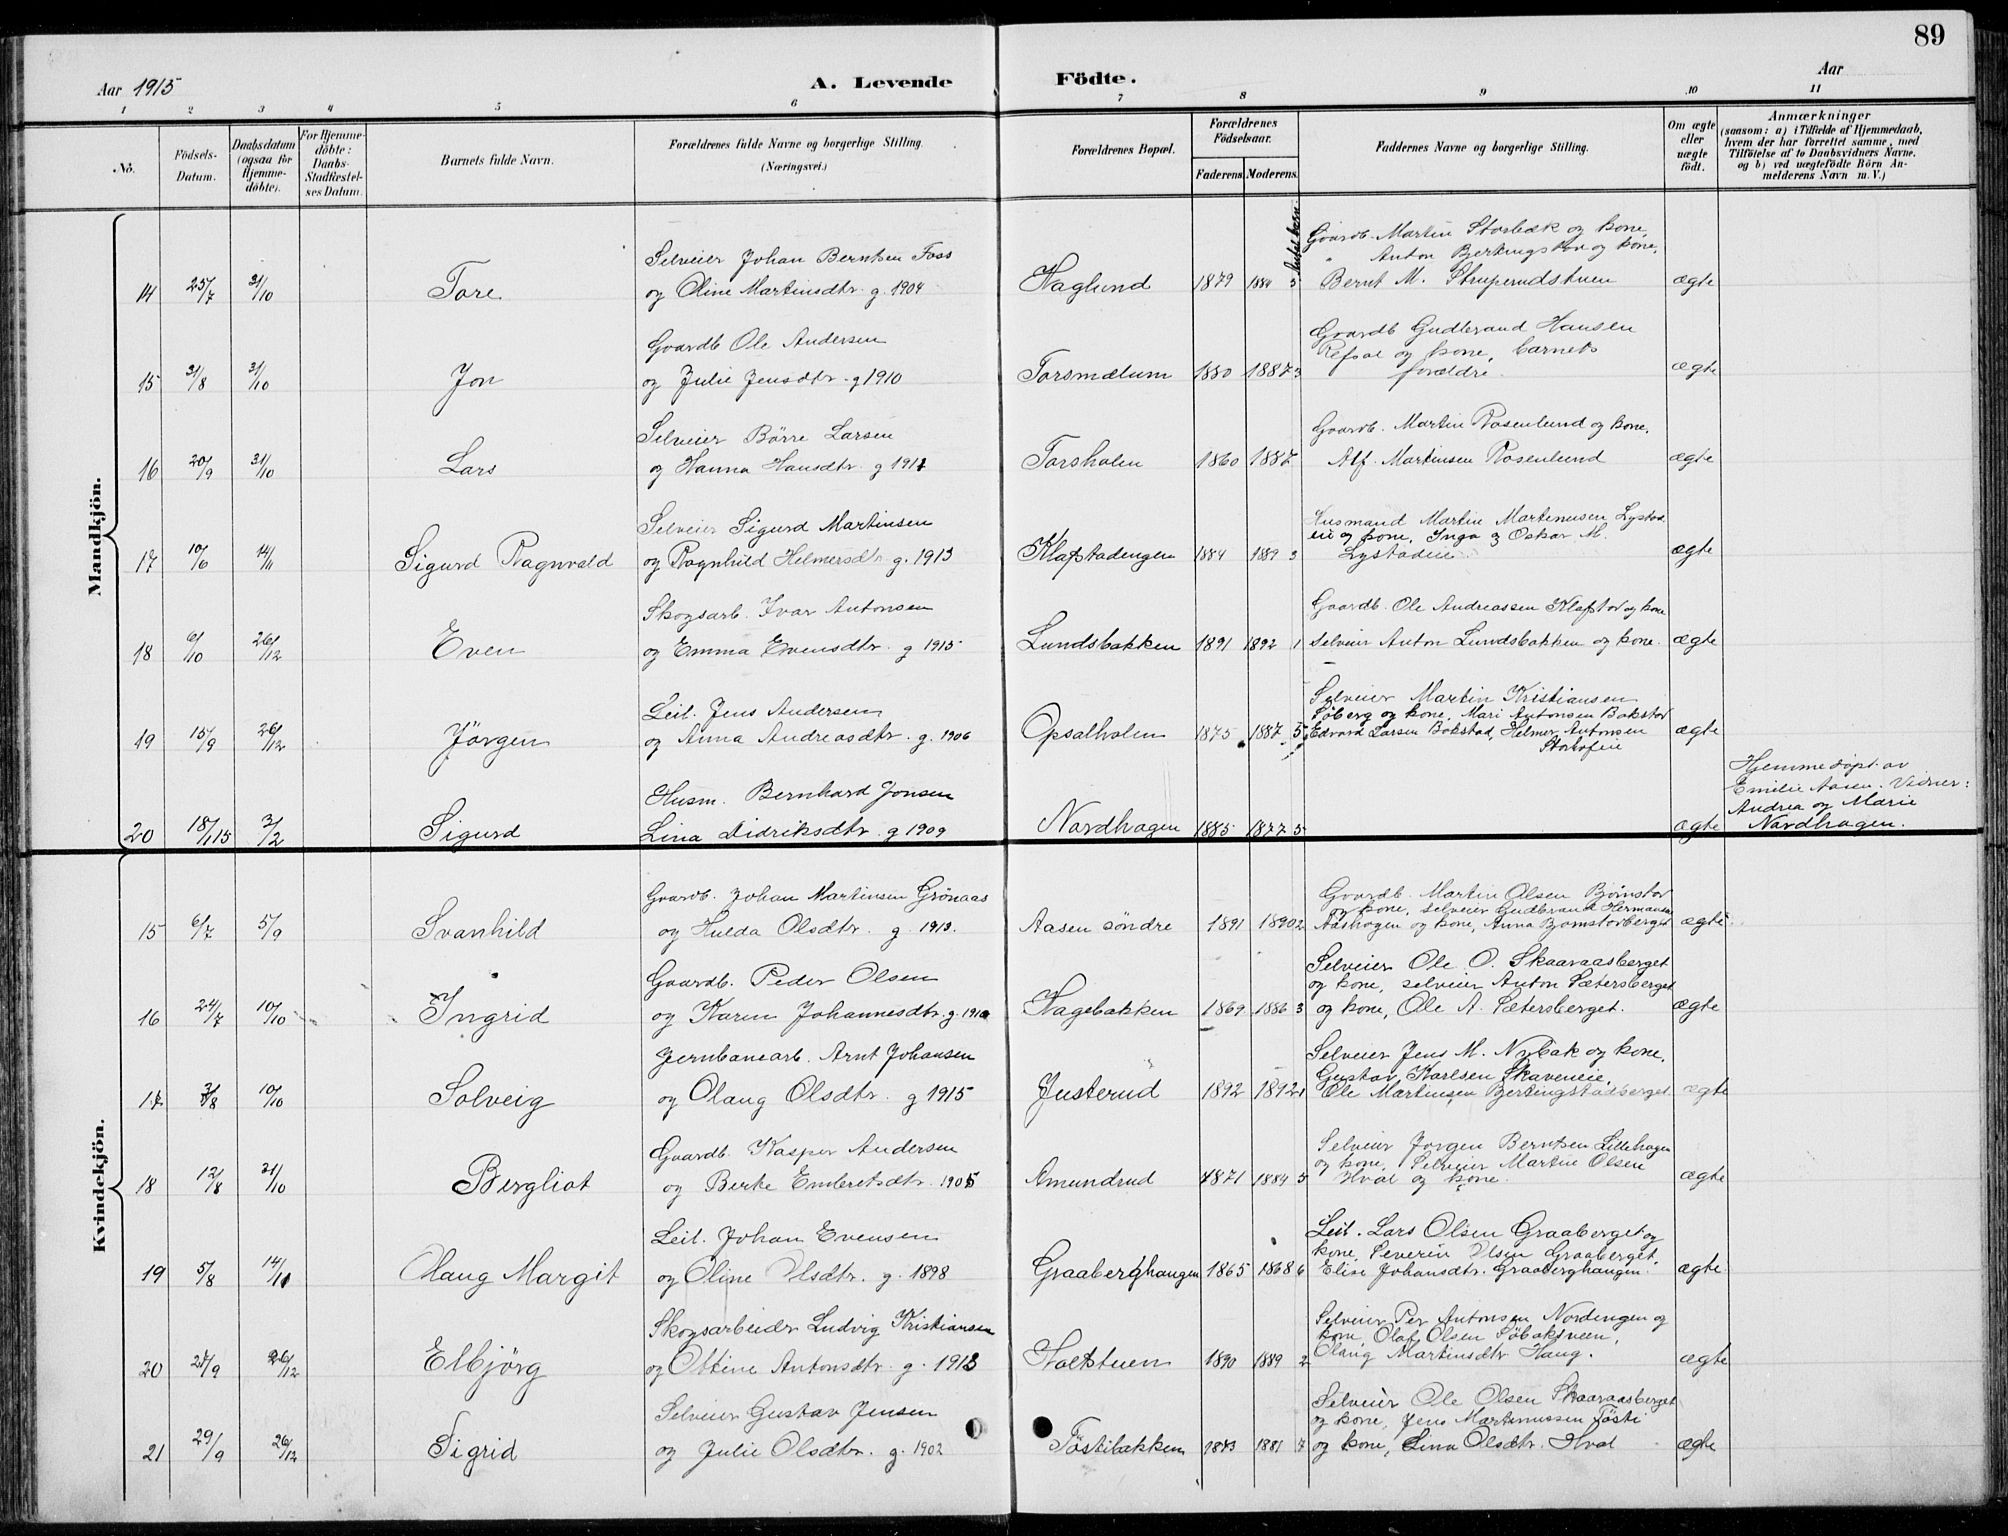 89
Aar 1915
A. Levende
Födte.
Aar
1 2 3 4 5 6 7 8 9 10 11
No.
Födsels-
Datum.
Daabsdatum
(ogsaa for
Hjemme-
döbte).
For Hjemme-
döbte:
Daabs-
Stadfæstel-
ses Datum.
Barnets fulde Navn.
Forældrenes fulde Navne og borgerlige Stilling.
(Næringsvei.)
Forældrenes Bopæl.
Forældrenes
Födselsaar.
Faderens. Moderens.
Faddernes Navne og borgerlige Stilling.
Om ægte
eller
uægte
födt.
Anmærkninger
(saasom: a) i Tilfælde af Hjemmedaab,
hvem der har forrettet samme, med
Tilföielse af to Daabsvidners Navne.
og b) ved uægtefödte Börn An-
melderens Navn m. V.)
Mandkjön.
Antal barn
Selveier Johan Berntsen Foss
Gaardb. Martin Storbæk og kone,
" Anton Bertingstad og kone,
14 25/7 31/10 Tore og Oline Martinsdtr. g. 1904 Haglund 1879 1884 5 Bernt M. Struperudstuen ægte
Gaardb Ole Andersen
Gaardb Gudbrand Hansen
Refsal og kone, barnets
15 31/8 31/10 Jon og Julie Jensdtr. g 1910 Torsmælum 1880 1887 3 forældre. ægte
Selveier Börre Larsen
Gaardb. Martin Rosenlund og kone,
16 20/9 31/10 Lars og Hanna Hansdtr. g 1911 Torsholen 1860 1887 Alf Martinsen Rosenlund ægte
Selveier Sigurd Martinsen
Husmand Martin Martinusen Lystad
eie og kone, Inga og Oskar M.
17 10/6 14/11 Sigurd Ragnvald og Ragnhild Helmersdtr. g. 1913 Klafstadengen 1884 1889 3 Lystadeie. ægte
Skogsarb. Ivar Antonsen
Gaardb. Ole Andreassen Klafstad og kone
18 6/10 26/12 Even og Emma Evensdtr. g 1915 Lundsbakken 1891 1892 1 Selveier Anton Lundsbakken og kone. ægte
Leil. Jens Andersen
Selveier Martin Kristiansen
Söberg og kone, Mari Antonsen Bakstad
19 15/9 26/12 Jörgen og Anna Andreasdtr. g. 1906 Opsalholen 1875 1887 5 Edvard Larsen Bakstad, Helmer Antonsen ægte
Husm. Bernhard Jonsen
Hjemmedöpt av
Emilie Aasen. Vidner:
Andrea og Marie
20 18/1 15 3/2 Sigurd Lina Didriksdtr. g 1909 Nordhagen 1885 1877 5 ægte Nordhagen.
Kvindekjön.
Gaardb. Johan Martinsen Grönaas
Gaardb. Martin Olsen Björnstad
og kone, selveier Gudbrand Hermansen
15 6/7 5/9 Svanhild og Hulda Olsdtr. g. 1913. Aasen söndre 1891 1890 2 Aashagen og kone, Anna Björnstadberget ægte.
Gaardb. Peder Olsen
Selveier Ole O. Skaaraasberget
og kone, selveier Anton Sætersberget
16 24/7 10/10 Ingrid og Karen Johannesdtr. g. 1910 Hagebakken 1869 1886 3 og kone, Ole A. Sætersberget. ægte
Jernbanearb. Arnt Johansen
Selveier Jens M. Nybak og kone,
Gustav Karlsen Skaveneie,
17 3/8 10/10 Solveig og Olaug Olsdtr. g 1915 Justerud 1892 1892 1 Ole Martinsen Bertingstadberget ægte
Gaardb. Kasper Andersen
Selveier Jörgen Berntsen Lillehagen
og kone, Selveier Martin Olsen
18 12/8 31/10 Bergliot og Berte Embretsdtr. 1905 Amundrud 1871 1884 5 Hval og kone. ægte
Leil. Johan Evensen
Leil. Lars Olsen Graaberget og
kone, Severin Olsen Graaberget,
19 5/8 14/11 Olaug Margit og Oline Olsdtr. g. 1898 Graaberghaugen 1865 1868 6 Elise Johansdtr. Graaberghaugen. ægte
Skogsarbeider Ludvig Kristiansen
Selveier Per Antonsen Nordengen og
kone, Olaf Olsen Söbakveen,
20 27/9 26/12 Elbjörg og Ottine Antonsdtr. g. 1913 Holtstuen 1890 1889 2 Olaug Martinsdtr Haug. ægte
Selveier Gustav Jensen
Selveier Ole Olsen Skaaraasberget
og kone, Jens Martinussen Tösti
21 29/9 26/12 Sigrid og Julie Olsdtr. g. 1902 Töstibakken 1873 1881 7 og kone, Lina Olsdtr. Hval ægte